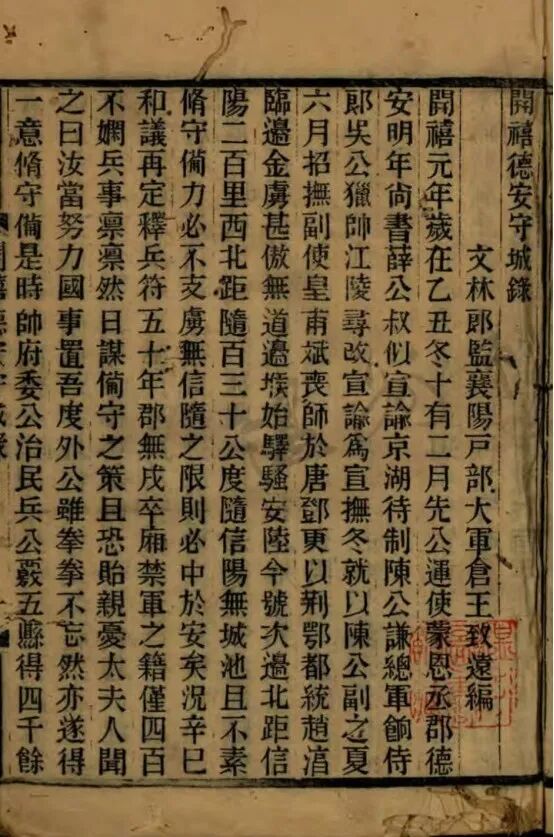 開禧德安守城錄
文林郎監襄陽戸部大軍倉王致遠編
開禧元年歲在乙丑冬十有二月先公運使蒙恩丞郡德
安明年尚書薛公叔似宣諭京湖待制陳公謙總軍餉侍
郎吳公獵帥江陵尋改宣諭爲宣撫冬就以陳公副之夏
六月招撫副使皇甫斌喪師於唐鄧更以荆鄂都統趙淳
臨邊金虜甚傲無道邊堠始驛騷安陸今號次邊北距信
陽二百里西北距隨百三十公度隨信陽無城池且不素
脩守備力必不支虜無信隨之限則必中於安矣況辛巳
和議再定釋兵符五十年郡無戌卒廂禁軍之籍僅四百
不嫻兵事稟稟然日謀備守之策且恐貽親憂太夫人聞
之曰汝當努力國事置吾度外公雖拳拳不忘然亦遂得
一意脩守備是時帥府委公治民兵公覈五縣得四千餘